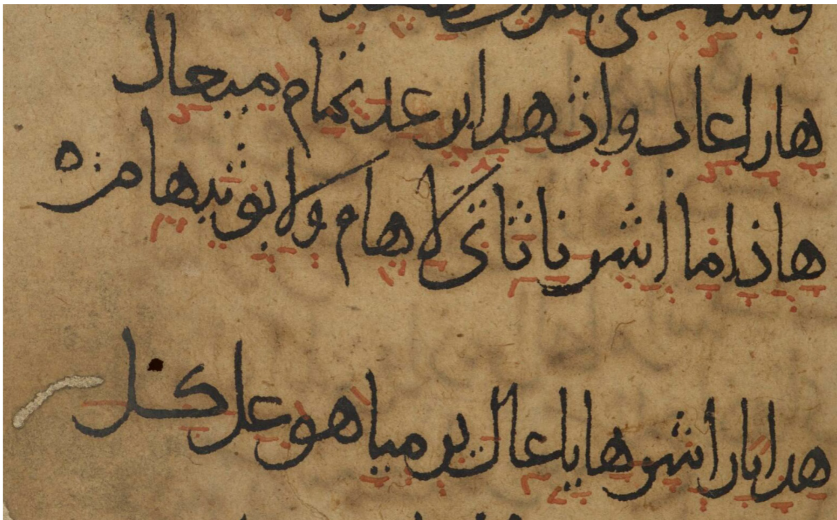 هاراعاب واث هدابر عد تمام ميعال
هاذاما اشر ناثاثي لاهام ولابوثيهام
هدابار اشر هايا عال يرمياهو عل كل